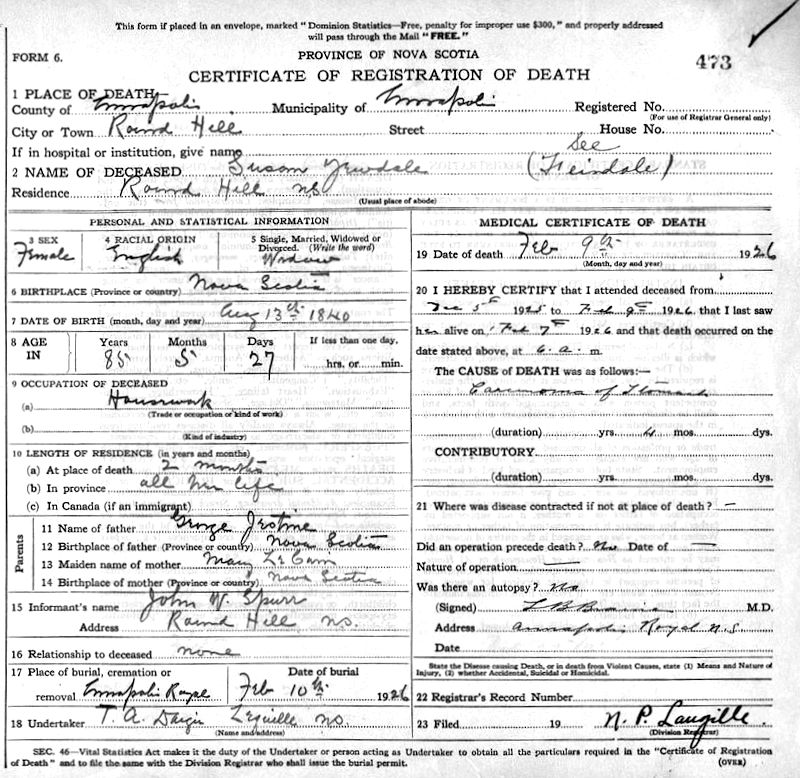 This form if placed in an envelope, marked "Dominion Statistics—Free, penalty for improper use $300," and properly addressed
will pass through the Mail "FREE."
FORM 6.
PROVINCE OF NOVA SCOTIA
473
CERTIFICATE OF REGISTRATION OF DEATH
1 PLACE OF DEATH—
County of Annapolis Municipality of Annapolis Registered No.
(For use of Registrar General only)
City or Town Round Hill Street House No.
If in hospital or institution, give name See
2 NAME OF DECEASED Susan Yewdale (Teindale)
Residence Round Hill NS
(Usual place of abode)
PERSONAL AND STATISTICAL INFORMATION
3 SEX 4 RACIAL ORIGIN 5 Single, Married, Widowed or
Divorced. (Write the word)
Female English Widow
6 BIRTHPLACE (Province or country) Nova Scotia
7 DATE OF BIRTH (month, day and year) Aug 13th 1840
8 AGE IN Years Months Days If less than one day,
85 5 27 hrs. or min.
9 OCCUPATION OF DECEASED
(a) Housework
(Trade or occupation or kind of work)
(b)
(Kind of industry)
10 LENGTH OF RESIDENCE (in years and months)
(a) At place of death 2 months
(b) In province all her life
(c) In Canada (if an immigrant)
Parents
11 Name of father George
12 Birthplace of father (Province or country) Nova Scotia
13 Maiden name of mother Mary LeCain
14 Birthplace of mother (Province or country) Nova Scotia
15 Informant's name John W. Spurr
Address Round Hill NS.
16 Relationship to deceased none
17 Place of burial, cremation or Date of burial
removal Annapolis Royal Feb 10th 1926
18 Undertaker T. A. Dargie Lequille NS
(Name and address)
MEDICAL CERTIFICATE OF DEATH
19 Date of death Feb 9th 1926
(Month, day and year)
20 I HEREBY CERTIFY that I attended deceased from
Dec 5th 1925 to Feb 9th 1926, that I last saw
her alive on Feb 7th 1926 and that death occurred on the
date stated above, at 6 a. m.
The CAUSE of DEATH was as follows:—
Carcinoma of Stomach
(duration) yrs. 4 mos. dys.
CONTRIBUTORY
(duration) yrs. mos. dys.
21 Where was disease contracted if not at place of death? —
Did an operation precede death? No Date of —
Nature of operation —
Was there an autopsy? No
(Signed) L B M.D.
Address Annapolis Royal N.S
Date
State the Disease causing Death, or in death from Violent Causes, state (1) Means and Nature of
Injury, (2) whether Accidental, Suicidal or Homicidal.
22 Registrar's Record Number
23 Filed 19 N. P. Langille
(Division Registrar)
SEC. 46—Vital Statistics Act makes it the duty of the Undertaker or person acting as Undertaker to obtain all the particulars required in the "Certificate of Registration
of Death" and to file the same with the Division Registrar who shall issue the burial permit. (OVER)